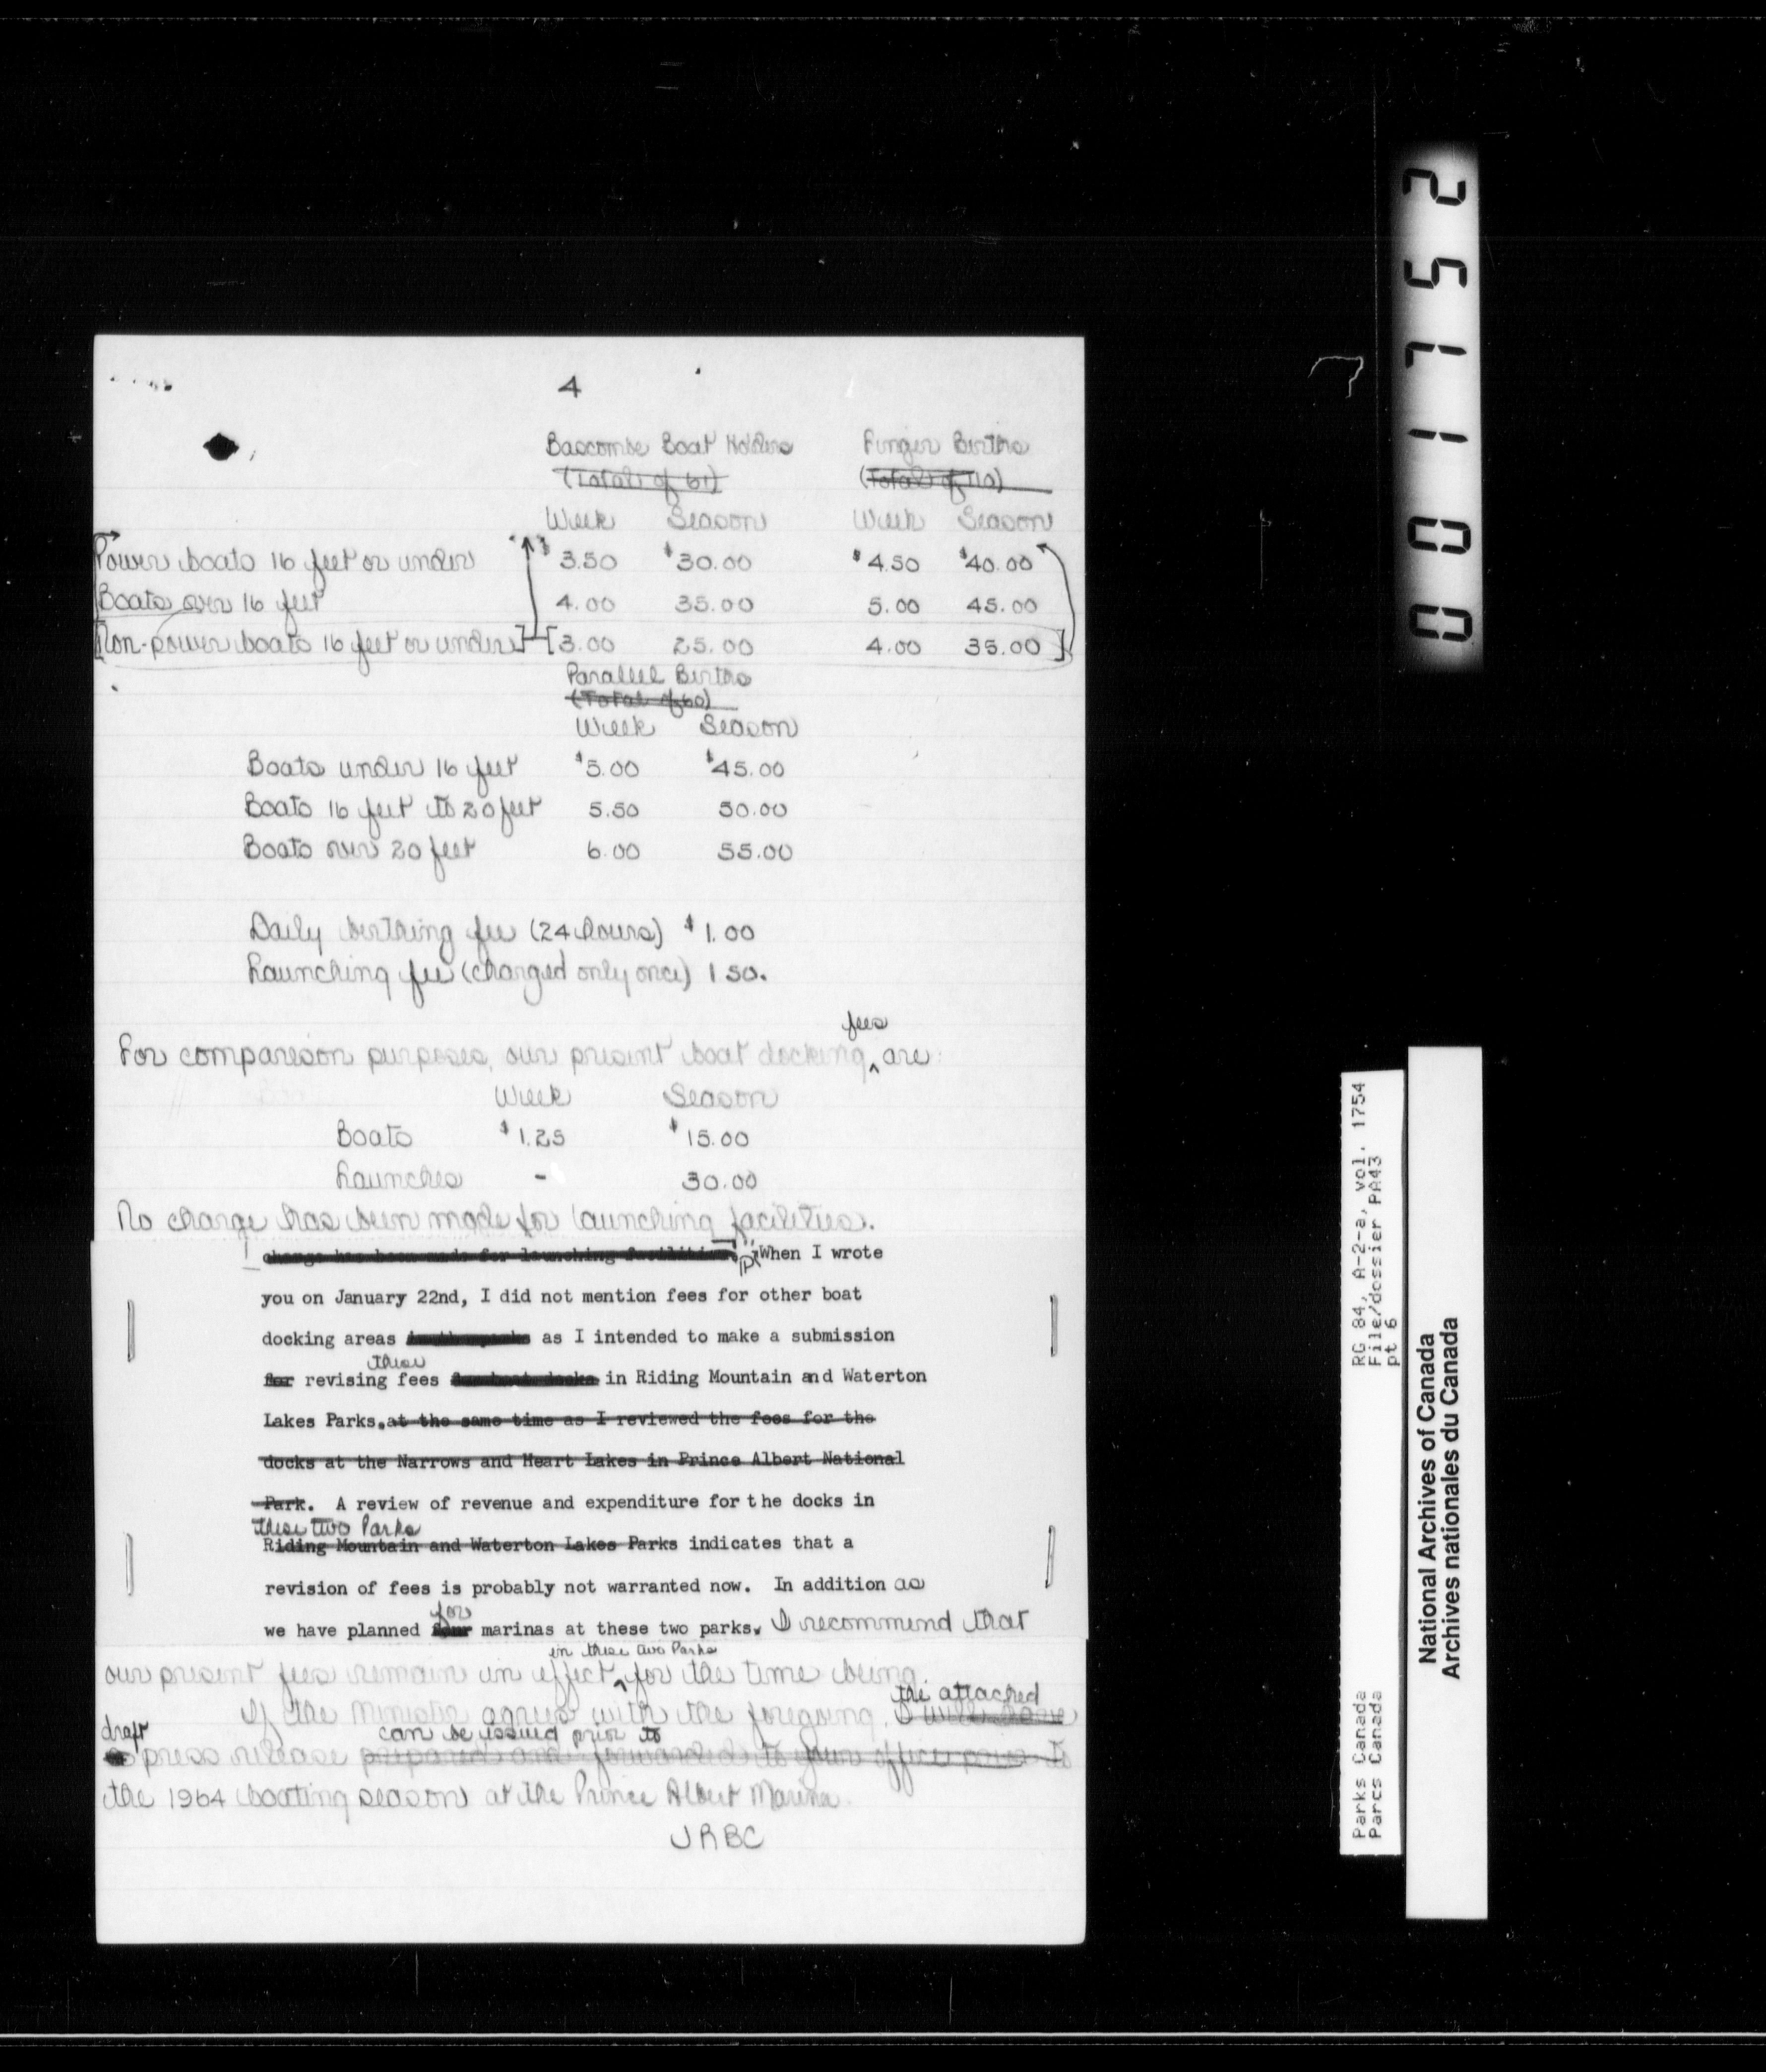 4
Bascombe Boat Holders Finger Births
(Total of 61) (Total of 110)
Week Season Week Season
Power boats 16 feet or under $3.50 $30.00 $4.50 $40.00
Boats over 16 feet 4.00 35.00 5.00 45.00
[Non-power boats 16 feet or under] [3.00 25.00 4.00 35.00]
Parallel Births
(Total of 60)
Week Season
Boats under 16 feet $5.00 $45.00
Boats 16 feet to 20 feet 5.50 50.00
Boats over 20 feet 6.00 55.00
Daily birthing fee (24 hours) $1.00
Launching fee (charged only once) 1 50.
fees
For comparison purposes, our present boat docking ^ are:
Week Season
Boats $1.25 $15.00
Launches - 30.00
No charge has been made for launching facilities.
charge has been made for launching facilities. When I wrote
you on January 22nd, I did not mention fees for other boat
docking areas in the parks as I intended to make a submission
these
for revising fees for boat docks in Riding Mountain and Waterton
Lakes Parks. at the same time as I reviewed the fees for the
docks at the Narrows and Heart Lakes in Prince Albert National
Park. A review of revenue and expenditure for the docks in
these two Parks
Riding Mountain and Waterton Lakes Parks indicates that a
revision of fees is probably not warranted now. In addition as
for
we have planned marinas at these two parks. I recommend that
in these two Parks
our present fees remain in effect ^ for the time being.
the attached
If the Minister agrees with the foregoing, I will have
draft can be issued prior to
press release prepared and forwarded to your office prior to
the 1964 boating season at the Prince Albert Marina.
JRBC
001752
RG 84, A-2-a, vol. 1754
File/dossier PA43
pt 6
Parks Canada
Parcs Canada
National Archives of Canada
Archives nationales du Canada